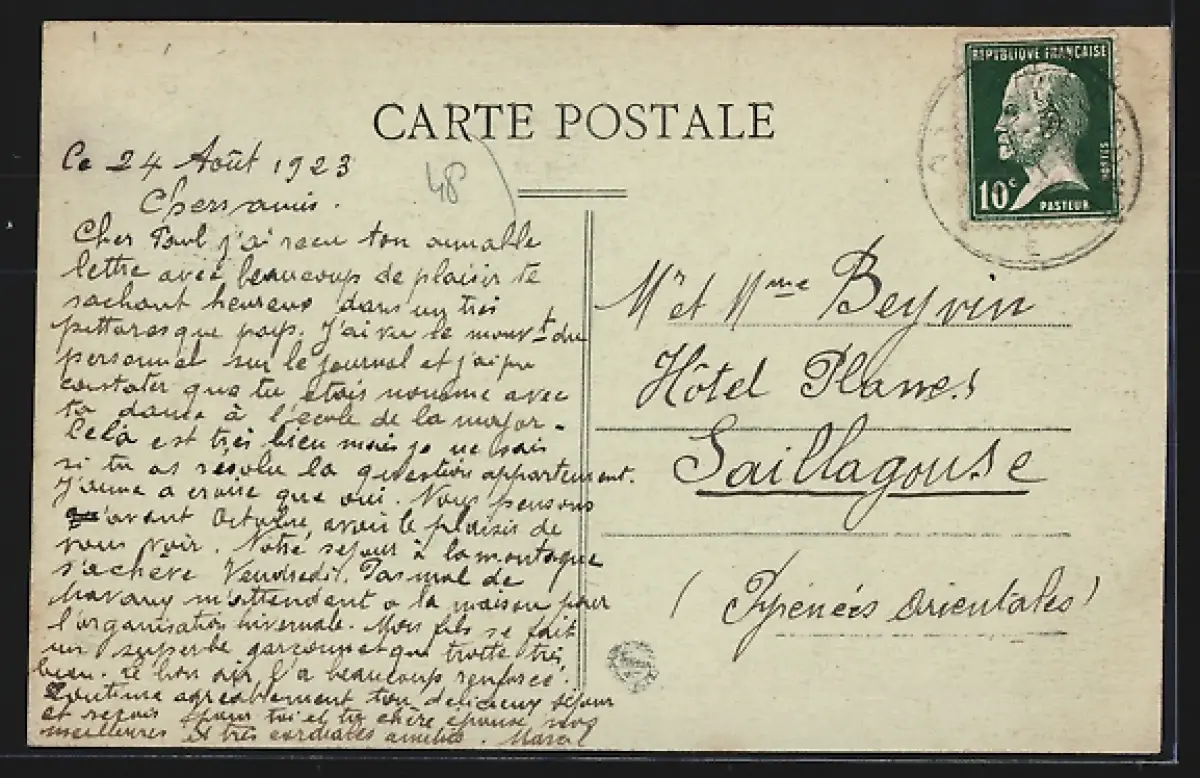 CARTE POSTALE
RÉPUBLIQUE FRANÇAISE
POSTES
10c
PASTEUR
48
Ce 24 Août 1923
Chers amis.
Cher Paul j'ai reçu ton aimable
lettre avec beaucoup de plaisir te
sachant heureux dans un très
pittoresque pays. J'ai vu le mouvt du
personnel sur le journal et j'ai pu
constater que tu étais nommé avec
ta dame à l'école de la major.
Celà est très bien mais je ne sais
si tu as résolu la question appartement.
J'aime à croire que oui. Nous pensons
qu'avant Octobre, avoir le plaisir de
vous voir. Notre séjour à la montagne
s'achève Vendredi. Pas mal de
travaux m'attendent à la maison pour
l'organisation hivernale. Mon fils se fait
un superbe garçonnet qui trotte très
bien. Le bon air l'a beaucoup renforcé.
Continue agréablement ton délicieux séjour
et reçois pour toi et ta chère épouse nos
meilleures et très cordiales amitiés.
Mr et Mme Beyvin
Hôtel Planes
Saillagouse
(Pyrénées Orientales)